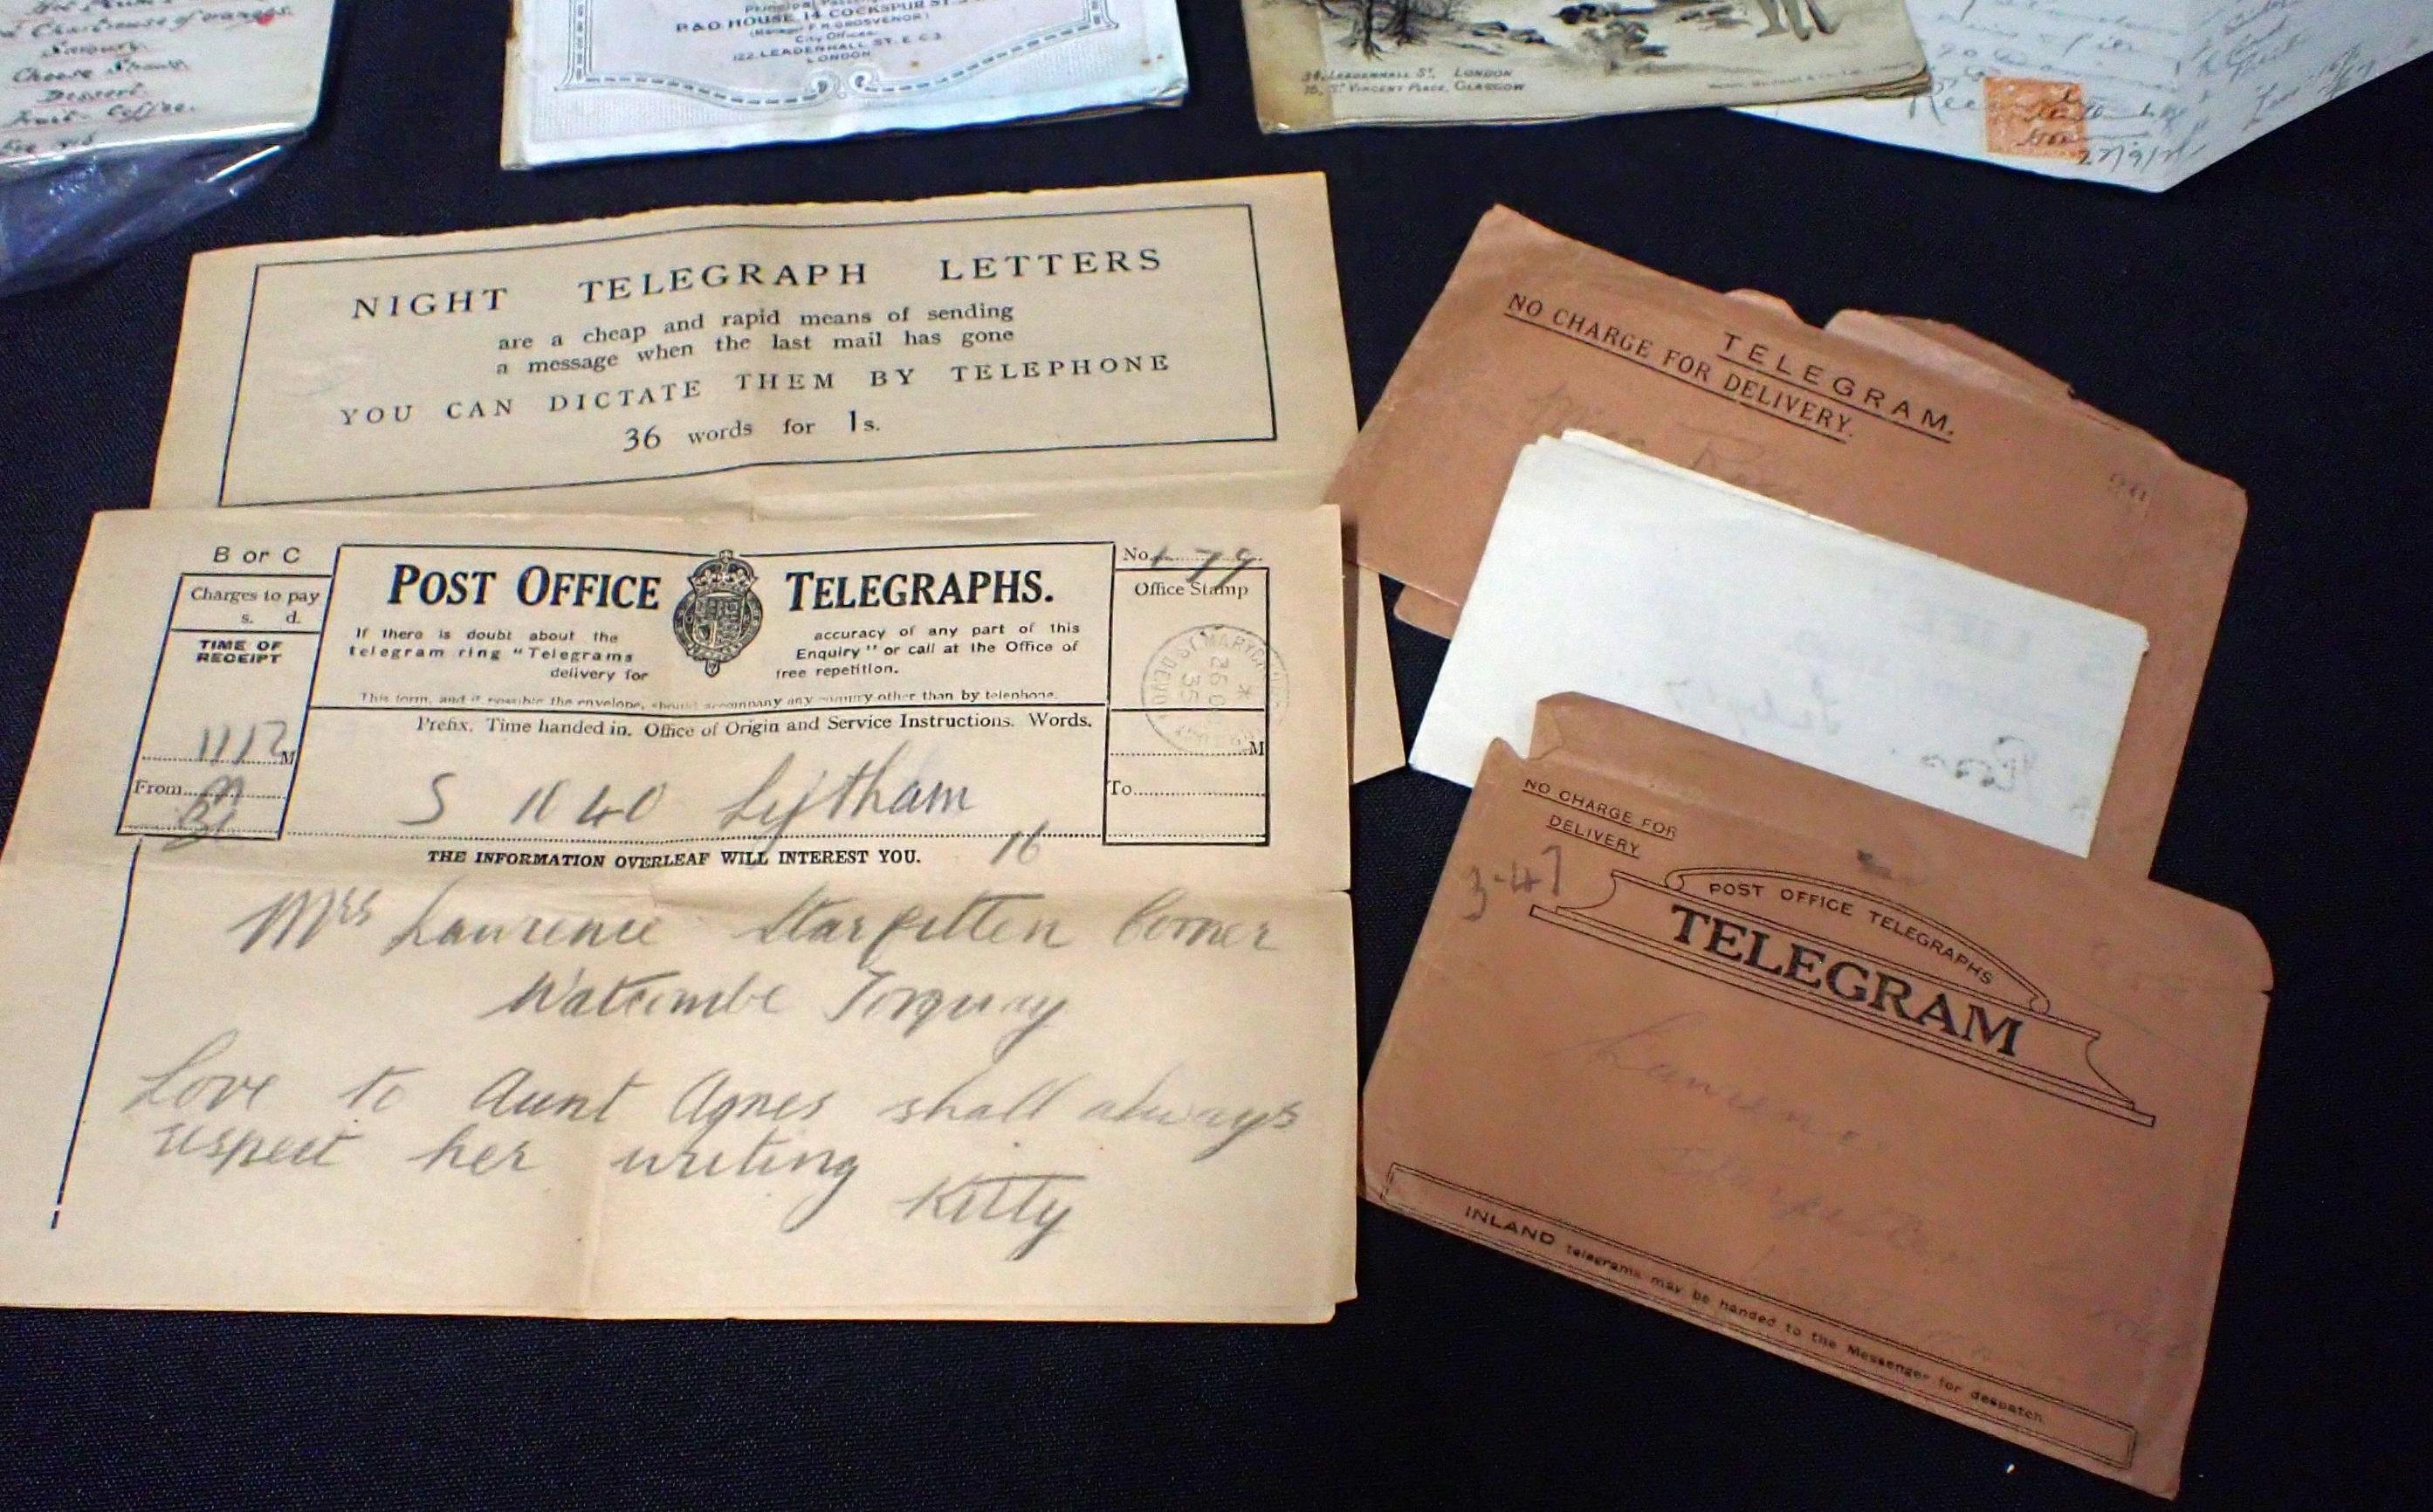 Chartreuse of oranges.
Savoury.
Cheese Straws
Dessert.
Fruit - Coffee.
P&O. HOUSE, 14 COCKSPUR ST
(Manager F.H. GROSVENOR)
City Offices:
122, LEADENHALL ST. E.C.3
LONDON
34, LEADENHALL ST, LONDON
15, ST VINCENT PLACE, GLASGOW
NIGHT TELEGRAPH LETTERS
are a cheap and rapid means of sending
a message when the last mail has gone
YOU CAN DICTATE THEM BY TELEPHONE
36 words for 1s.
B or C
Charges to pay
s. d.
TIME OF
RECEIPT
1112 M
From
POST OFFICE TELEGRAPHS.
If there is doubt about the accuracy of any part of this
telegram ring "Telegrams Enquiry" or call at the Office of
delivery for free repetition.
This form, and if possible the envelope, should accompany any enquiry other than by telephone.
Prefix. Time handed in. Office of Origin and Service Instructions. Words.
S 1040 Lytham
16
No. 79
Office Stamp
ST MARYCHURCH
26 OC
35
M
To
THE INFORMATION OVERLEAF WILL INTEREST YOU.
Mrs Lawrence Corner
Watcombe Torquay
Love to Aunt Agnes shall always
respect her writing
Kitty
TELEGRAM.
NO CHARGE FOR DELIVERY.
NO CHARGE FOR
DELIVERY
3-47
POST OFFICE TELEGRAPHS
TELEGRAM
Lawrence
INLAND telegrams may be handed to the Messenger for despatch